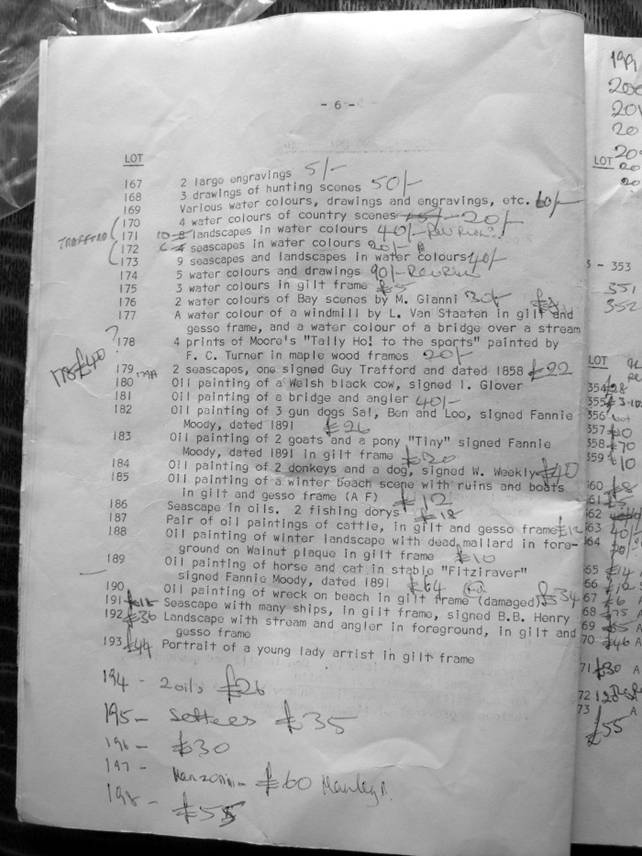 - 6 -
LOT
167 2 large engravings 5/-
168 3 drawings of hunting scenes 50/-
169 Various water colours, drawings and engravings, etc. 60/-
170 4 water colours of country scenes 20/-
TRAFFORD 171 10 8 landscapes in water colours 40/-
172 6 4 seascapes in water colours 20/-
173 9 seascapes and landscapes in water colours 40/-
174 5 water colours and drawings 90/-
175 3 water colours in gilt frame £5
176 2 water colours of Bay scenes by M. Gianni 30/-
177 A water colour of a windmill by L. Van Staaten in gilt and
gesso frame, and a water colour of a bridge over a stream
178 4 prints of Moore's "Tally Ho! to the sports" painted by
F. C. Turner in maple wood frames 20/-
178 £40 ?
179 2 seascapes, one signed Guy Trafford and dated 1858 £22
180 179A Oil painting of a Welsh black cow, signed I. Glover
181 Oil painting of a bridge and angler 40/-
182 Oil painting of 3 gun dogs Sal, Ben and Loo, signed Fannie
Moody, dated 1891 £26
183 Oil painting of 2 goats and a pony "Tiny" signed Fannie
Moody, dated 1891 in gilt frame
184 Oil painting of 2 donkeys and a dog, signed W. Weekly £40
185 Oil painting of a winter beach scene with ruins and boats
in gilt and gesso frame (A F) £12
186 Seascape in oils. 2 fishing dorys £18
187 Pair of oil paintings of cattle, in gilt and gesso frame £12
188 Oil painting of winter landscape with dead mallard in fore-
ground on Walnut plaque in gilt frame £10
189 Oil painting of horse and cat in stable "Fitziraver"
signed Fannie Moody, dated 1891 £64
190 Oil painting of wreck on beach in gilt frame (damaged) £34
191 £18 Seascape with many ships, in gilt frame, signed B.B. Henry
192 £36 Landscape with stream and angler in foreground, in gilt and
gesso frame
193 £44 Portrait of a young lady artist in gilt frame
194 - 2 oils £26
195 - Settees £35
196 - £30
197 - £60
198 - £55
199
200
LOT
3 - 353
351
352
LOT
354
355
356
357 £10
358 £70
359 £10
60 £8
61
62
63 40/-
64
65 £14
66 £12
67 £6
68
69
70 £46 A
71 £30 A
72
73 A
£55